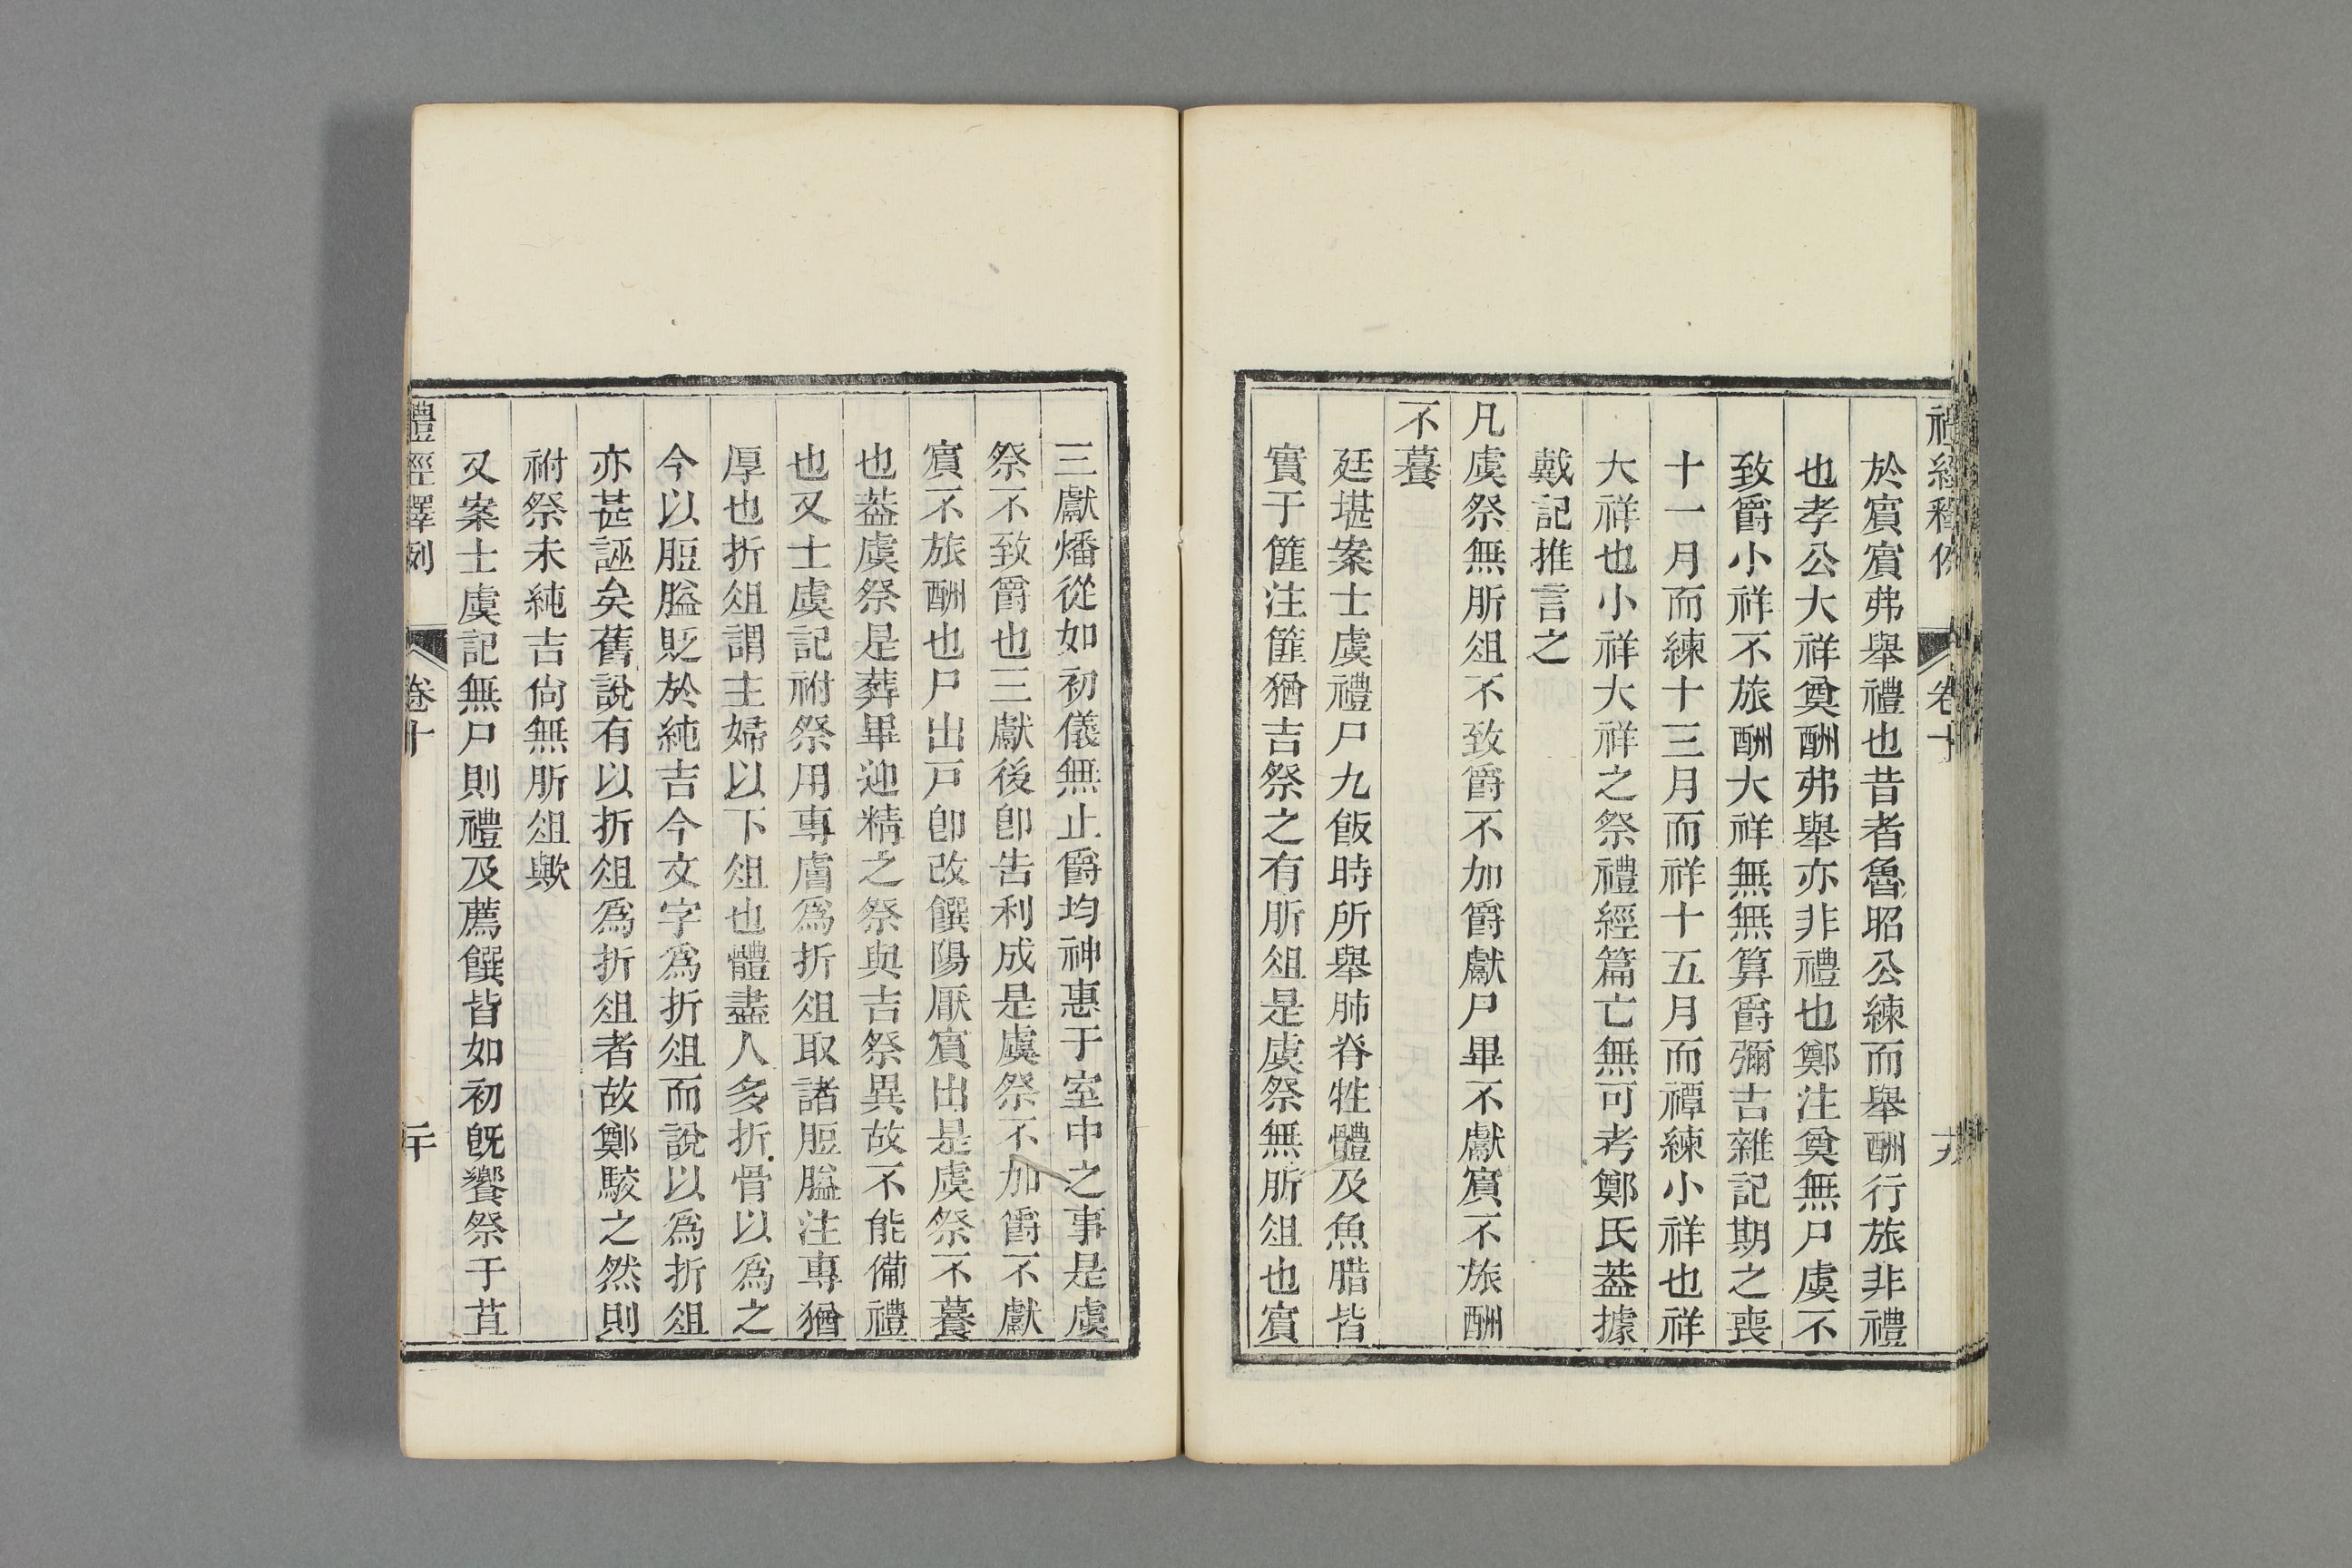 禮經釋例 卷十 十九
於賓賓弗舉禮也昔者魯昭公練而舉酬行旅非禮
也孝公大祥奠酬弗舉亦非禮也鄭注奠無尸虞不
致爵小祥不旅酬大祥無無算爵彌吉雜記期之喪
十一月而練十三月而祥十五月而禫練小祥也祥
大祥也小祥大祥之祭禮經篇亡無可考鄭氏葢據
戴記推言之
凡虞祭無肵俎不致爵不加爵獻尸畢不獻賓不旅酬
不䭕
廷堪案士虞禮尸九飯時所舉肺脊牲體及魚腊皆
實于篚注篚猶吉祭之有肵俎是虞祭無肵俎也賓
三獻燔從如初儀無止爵均神惠于室中之事是虞
祭不致爵也三獻後卽告利成是虞祭不加爵不獻
賓不旅酬也尸出戸卽改饌陽厭賓出是虞祭不䭕
也葢虞祭是葬畢迎精之祭與吉祭異故不能備禮
也又士虞記祔祭用專膚爲折俎取諸脰膉注專猶
厚也折俎謂主婦以下俎也體盡人多折骨以爲之
今以脰膉貶於純吉今文字爲折俎而說以爲肵俎
亦甚誣矣舊說有以折俎爲折俎者故鄭駮之然則
祔祭未純吉尙無肵俎歟
又案士虞記無尸則禮及薦饌皆如初旣饗祭于苴
禮經釋例 卷十 二十